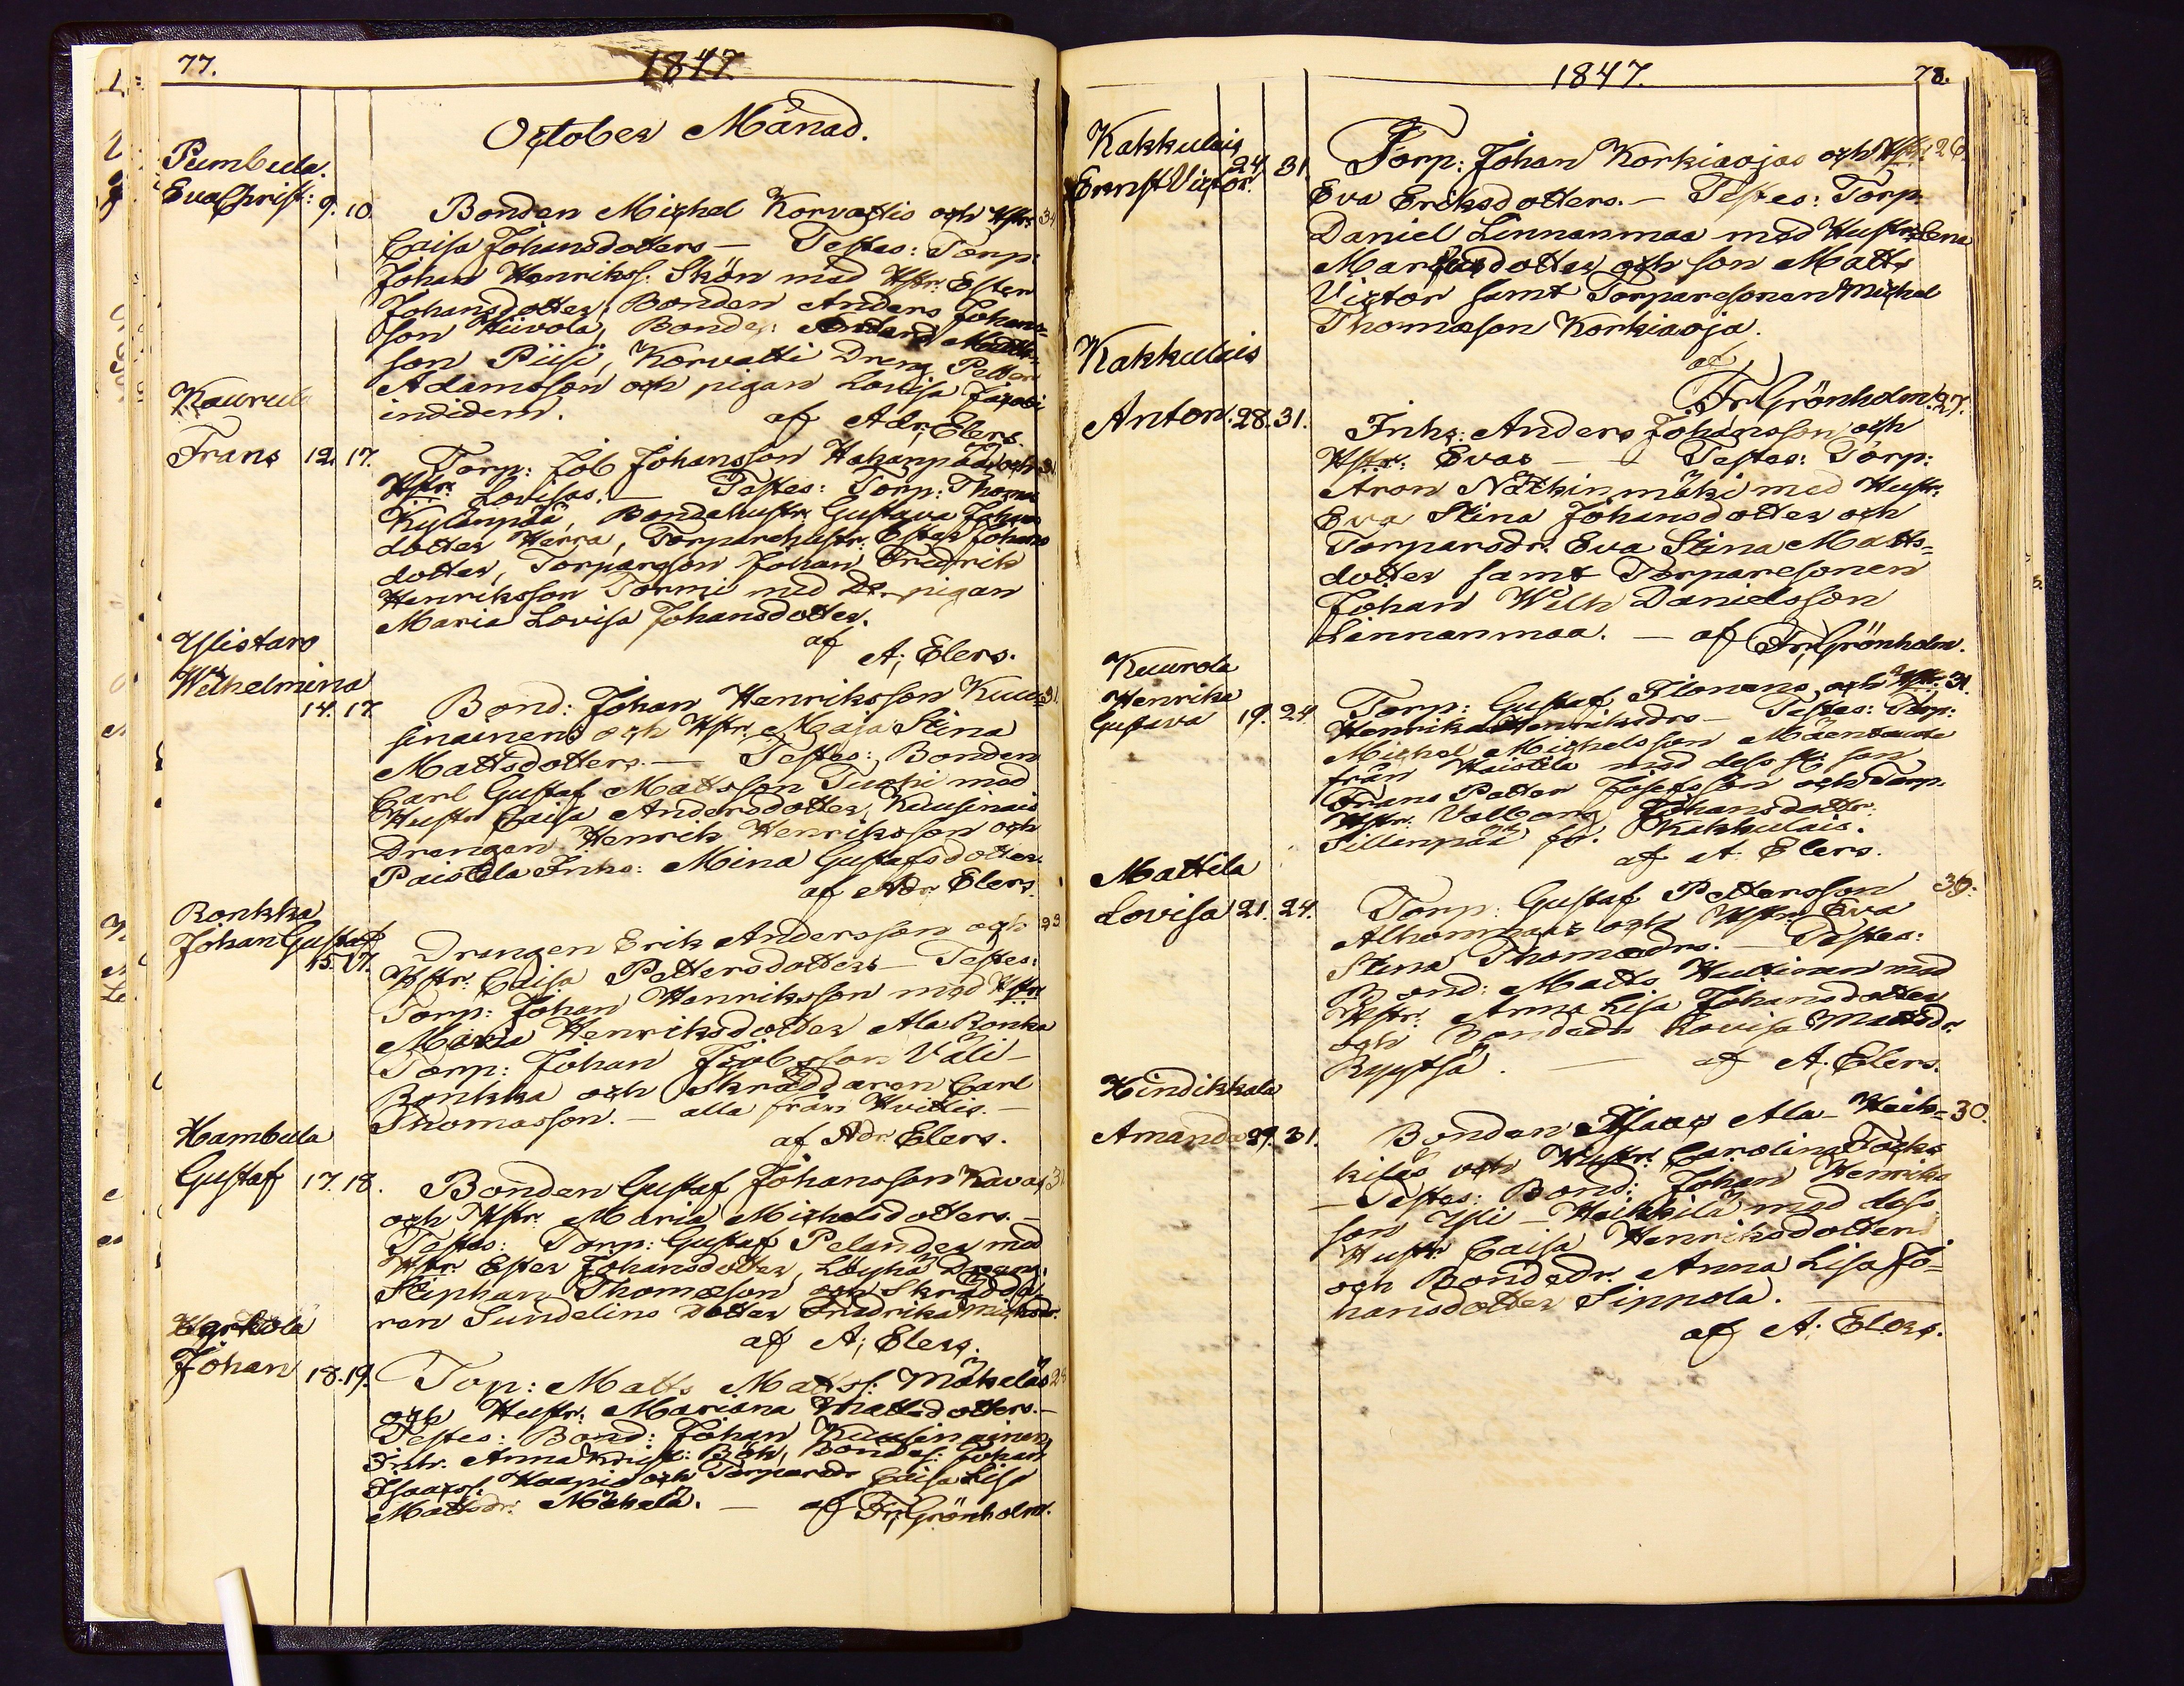 77.
1847.
October Månad.
Pumbula.
Eva Christ: 9. 10.
Bonden Michel Korvattis och Hstr: 34
Caisa Johansdotters — Testes: Torp:
Johan Henrikss: Skön med Hstr: Ester
Johansdotter, Bonden Anders Johans=
son Hiivola, Bondes: Matts=
son Piisi, Korvatti Dreng Petter
Adamsson och pigan Lovisa
indidem.
af Adr: Elers.
Kaurula
Frans 12. 17.
Torp: Job Johansson Hahanpää och 31
Hstr: Lovisas. — Testes: Torp: Thomas
Kylänpää, Bondehustr: Gustava Johans
dotter Herra, Torparehustr: Ester Johans
dotter, Torpareson Johan Fredrik
Henriksson Tormi med D:r pigan
Maria Lovisa Johansdotter.
af
A; Elers.
Ylistaro
Wilhelmina
14. 17
Bond: Johan Henriksson Kuu= 31.
sinainens och Hstr: Maja Stina
Mattsdotters. — Testes: Bonden
Carl Gustaf Mattsson Tuohi med
Hustr: Caisa Andersdotter, Kuusinais
Drengen Henrik Henriksson och
Paistila Inhs: Mina Gustafsdotter.
af Adr: Elers.
Ronkka
Johan Gustaf
15. 17.
Drengen Erik Andersson och 23
Hstr: Caisa Pettersdotters — Testes:
Torp: Johan Henriksson med Hstr:
Maria Henriksdotter Ala Ronka
Torp: Johan Jcobsson Väli-
Ronkka och Skräddaren Carl
Thomasson. — alla från Hvittis. —
af Adr: Elers.
Hambula
Gustaf 17. 18.
Bonden Gustaf Johansson Kavas 31
och Hstr: Maria Michelsdotters. —
Testes: Torp: Gustaf Pelander med
Hstr: Ester Johansdotter, Löyhä Dreng:
Stephan Thomasson och Skrädda
ren Sundelins Dotter Fredrika Michsdr.
af A; Elers.
Harkola
Johan 18. 19.
Torp: Matts Mattss: Mäkeläs 28
och Hustr: Mariana Mattsdotters. —
Testes: Bond: Johan Kuusinainen
Inh: Anna Krist: Böh, Bondes: Johan
Isaacss: Haapio och Torparedr Caisa Lisa
Mattsdr: Mäkelä. — af Fr; Grönholm.
1847.
78.
Kakkulais
Ernst Victor. 24 31.
Torp: Johan Korkiaojas och Hstr: 26.
Eva Eriksdotters. — Testes: Torp:
Daniel Linnanmaa med Hustr: Lena
Marcusdotter och son Matts
Victor samt Torparesonen Michel
Thomasson Korkiaoja.
af
Fr: Grönholm.
Kakkulais
Anton. 28. 31.
27.
Inhs: Anders Johansson och
Hstr: Evas — Testes: Torp:
Aron Nätkinmäki med Hustr:
Eva Stina Johansdotter och
Torparedr: Eva Stina Matts=
dotter samt Torparesonen
Johan Wilh Danielsson
Linnanmaa. — af Fr; Grönholm.
Kuurola
Henrika
Gustava 19. 24.
Torp: Gustaf Silonens och Hstr: 31.
Henrika Henriksdrs — Testes: Torp:
Michel Michelsson Mäentausta
från Haistila med dess st: son
Frans Petter Josefsson och Torp.
Hstr: Valborg Johansdotter
Sillanpää fr: Kakkulais.
af A: Elers.
Mattila
Lovisa 21. 24.
Torp: Gustaf Pettersson 39.
Alhonmaas och Hstr: Eva
Stina Thomædrs. — Testes:
Bond: Matts Huitinen med
Hstr: Anna Lisa Johansdotter
och Bondedr Lovisa Mattsdr.
Ryytsä. — af A; Elers.
Hindikkala
Amanda 29. 31.
Bonden Isaac Ala-Heik= 30.
kiläs och Hustr: Carolina
— Testes: Bond: Johan Henriks
son Yli-Heikkilä med dess
Hustr: Caisa Henriksdotter
och Bondedr. Anna Lisa Jo=
hansdotter Sippola. —
af A: Elers.